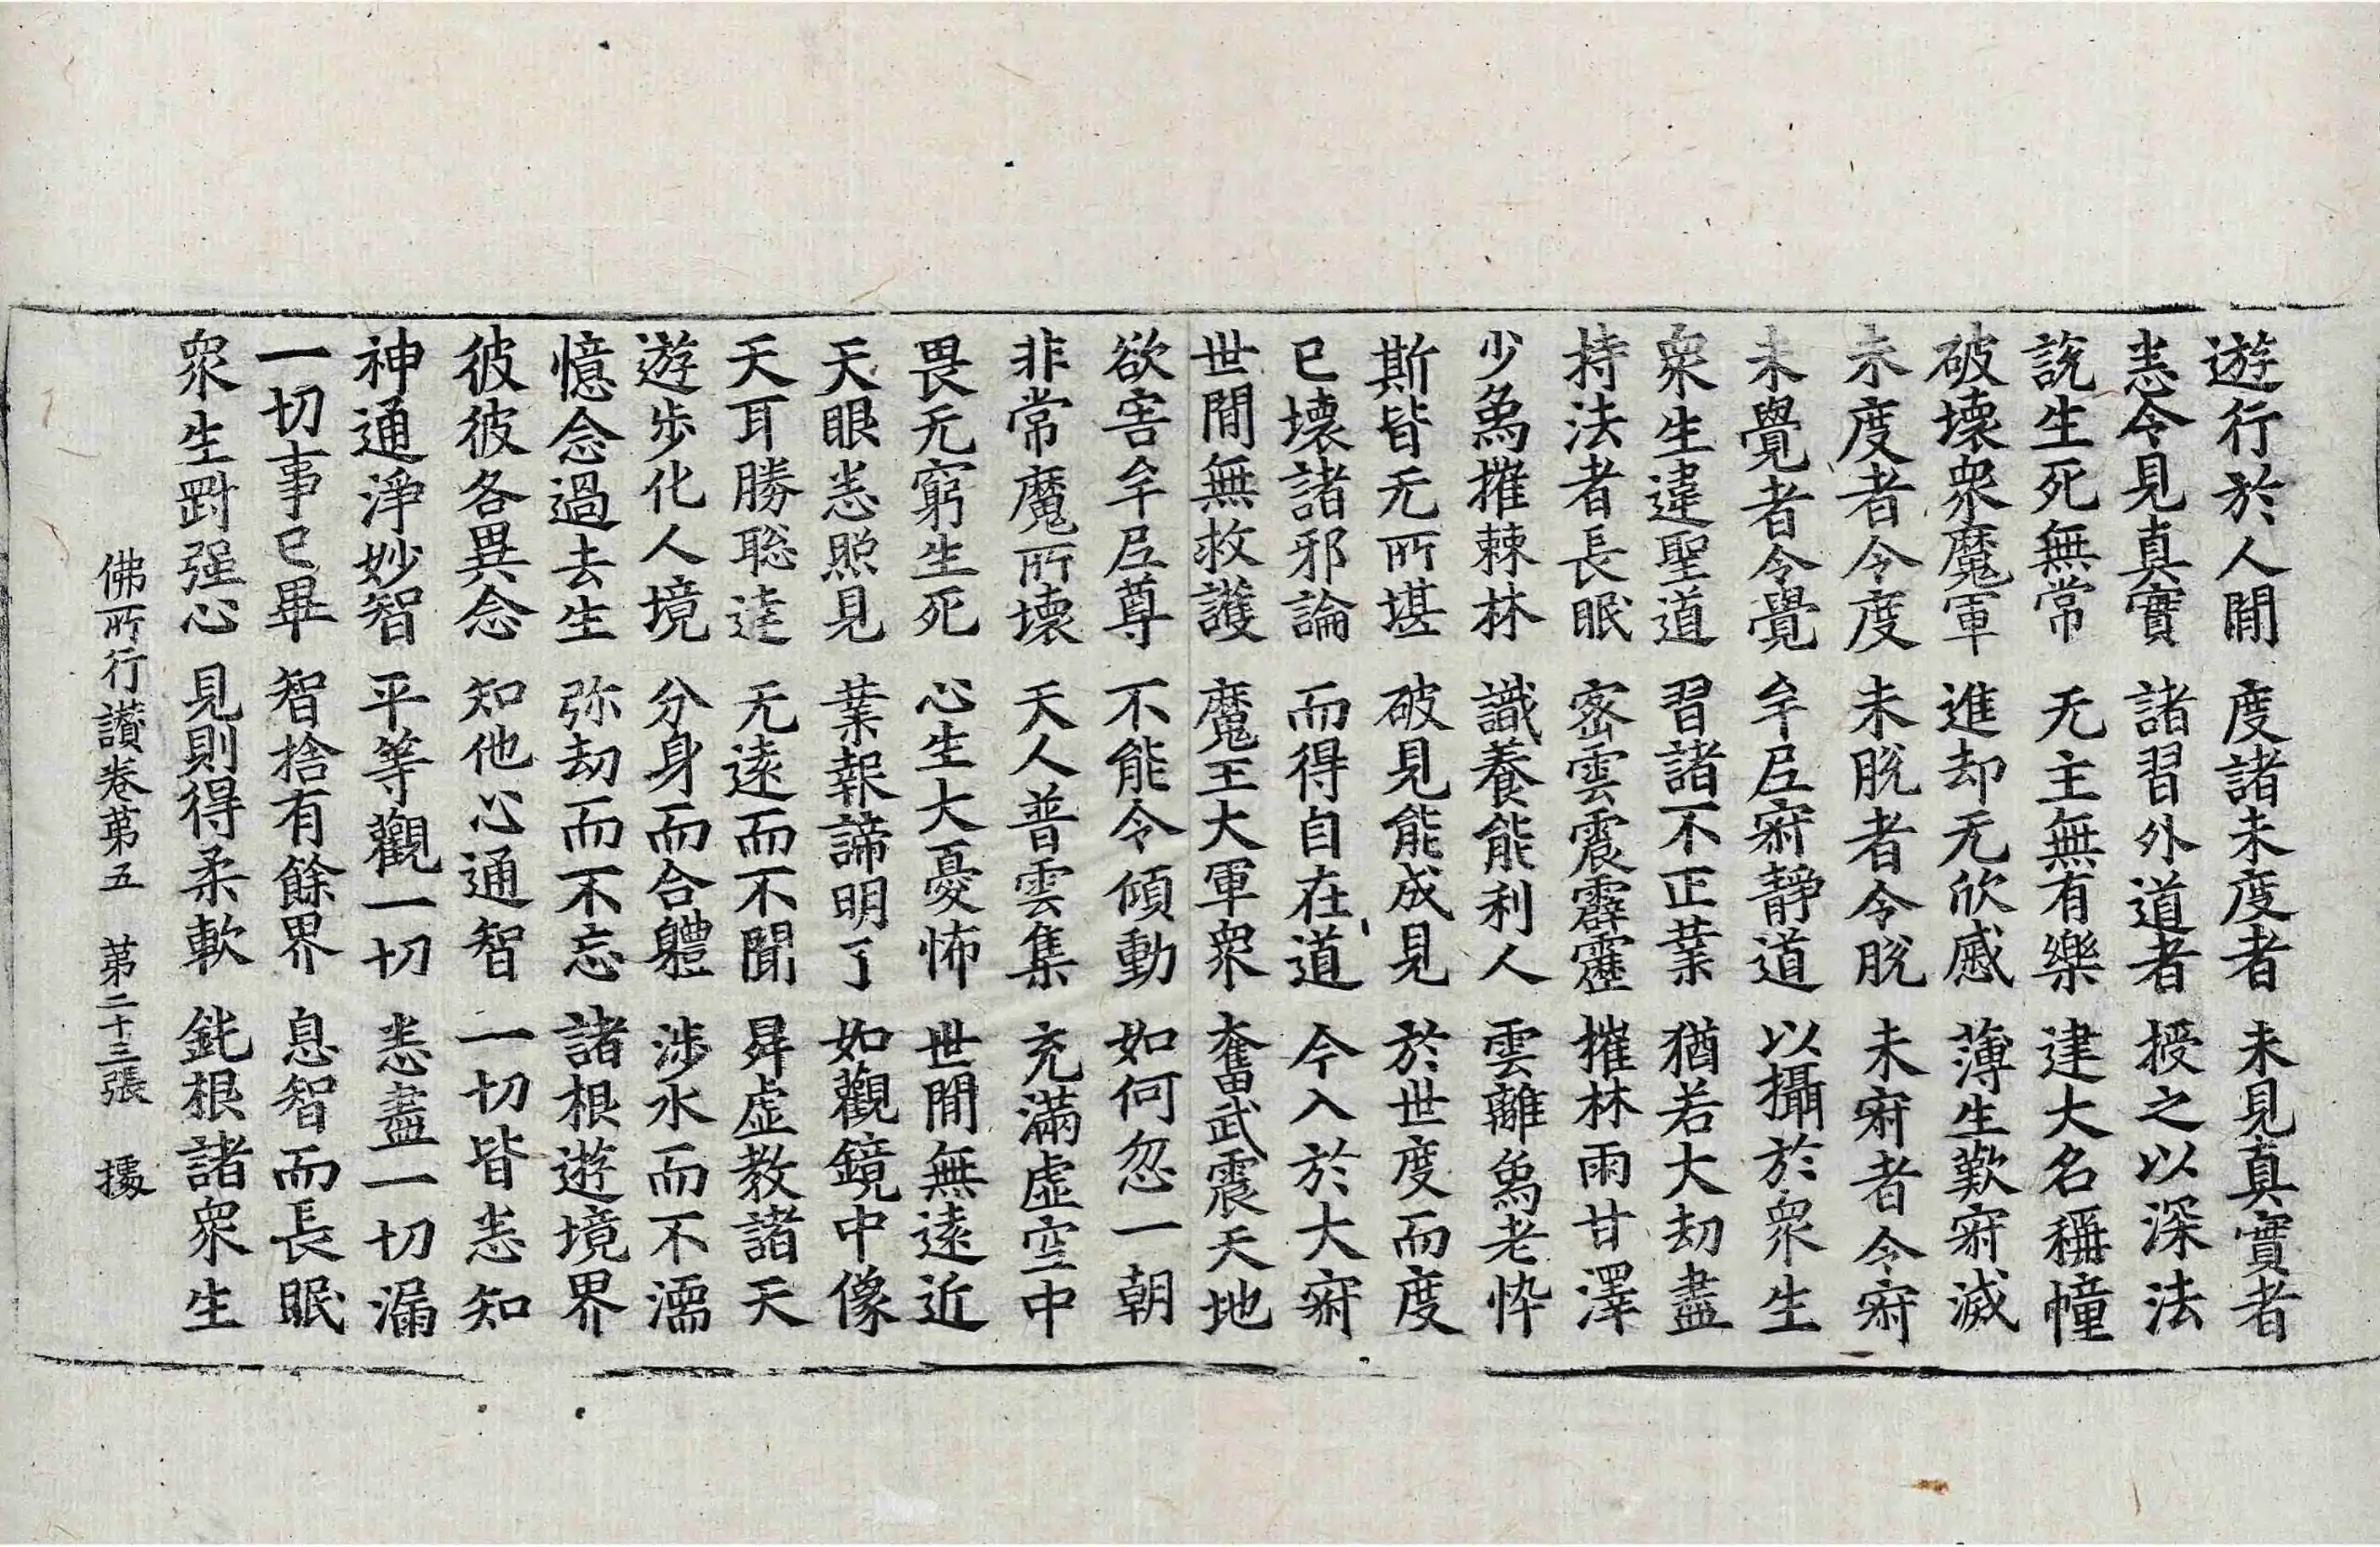 遊行於人間 度諸未度者 未見真實者
悉令見真實 諸習外道者 授之以深法
說生死無常 无主無有樂 建大名稱幢
破壞衆魔軍 進却无欣慼 薄生歎寂滅
未度者令度 未脫者令脫 未寂者令寂
未覺者令覺 牟尼寂靜道 以攝於衆生
衆生違聖道 習諸不正業 猶若大劫盡
持法者長眠 密雲震霹靂 摧林雨甘澤
少烏摧棘林 識養能利人 雲離烏老悴
斯皆无所堪 破見能成見 於世度而度
已壞諸邪論 而得自在道 今入於大寂
世間無救護 魔王大軍衆 奮武震天地
欲害牟尼尊 不能令傾動 如何忽一朝
非常魔所壞 天人普雲集 充滿虛空中
畏无窮生死 心生大憂怖 世間無遠近
天眼悉照見 業報諦明了 如觀鏡中像
天耳勝聡達 无遠而不聞 昇虛教諸天
遊步化人境 分身而合體 涉水而不濡
憶念過去生 弥劫而不忘 諸根遊境界
彼彼各異念 知他心通智 一切皆悉知
神通淨妙智 平等觀一切 悉盡一切漏
一切事已畢 智捨有餘界 息智而長眠
衆生剛强心 見則得柔軟 鈍根諸衆生
佛所行讃卷第五 第二十三張 據